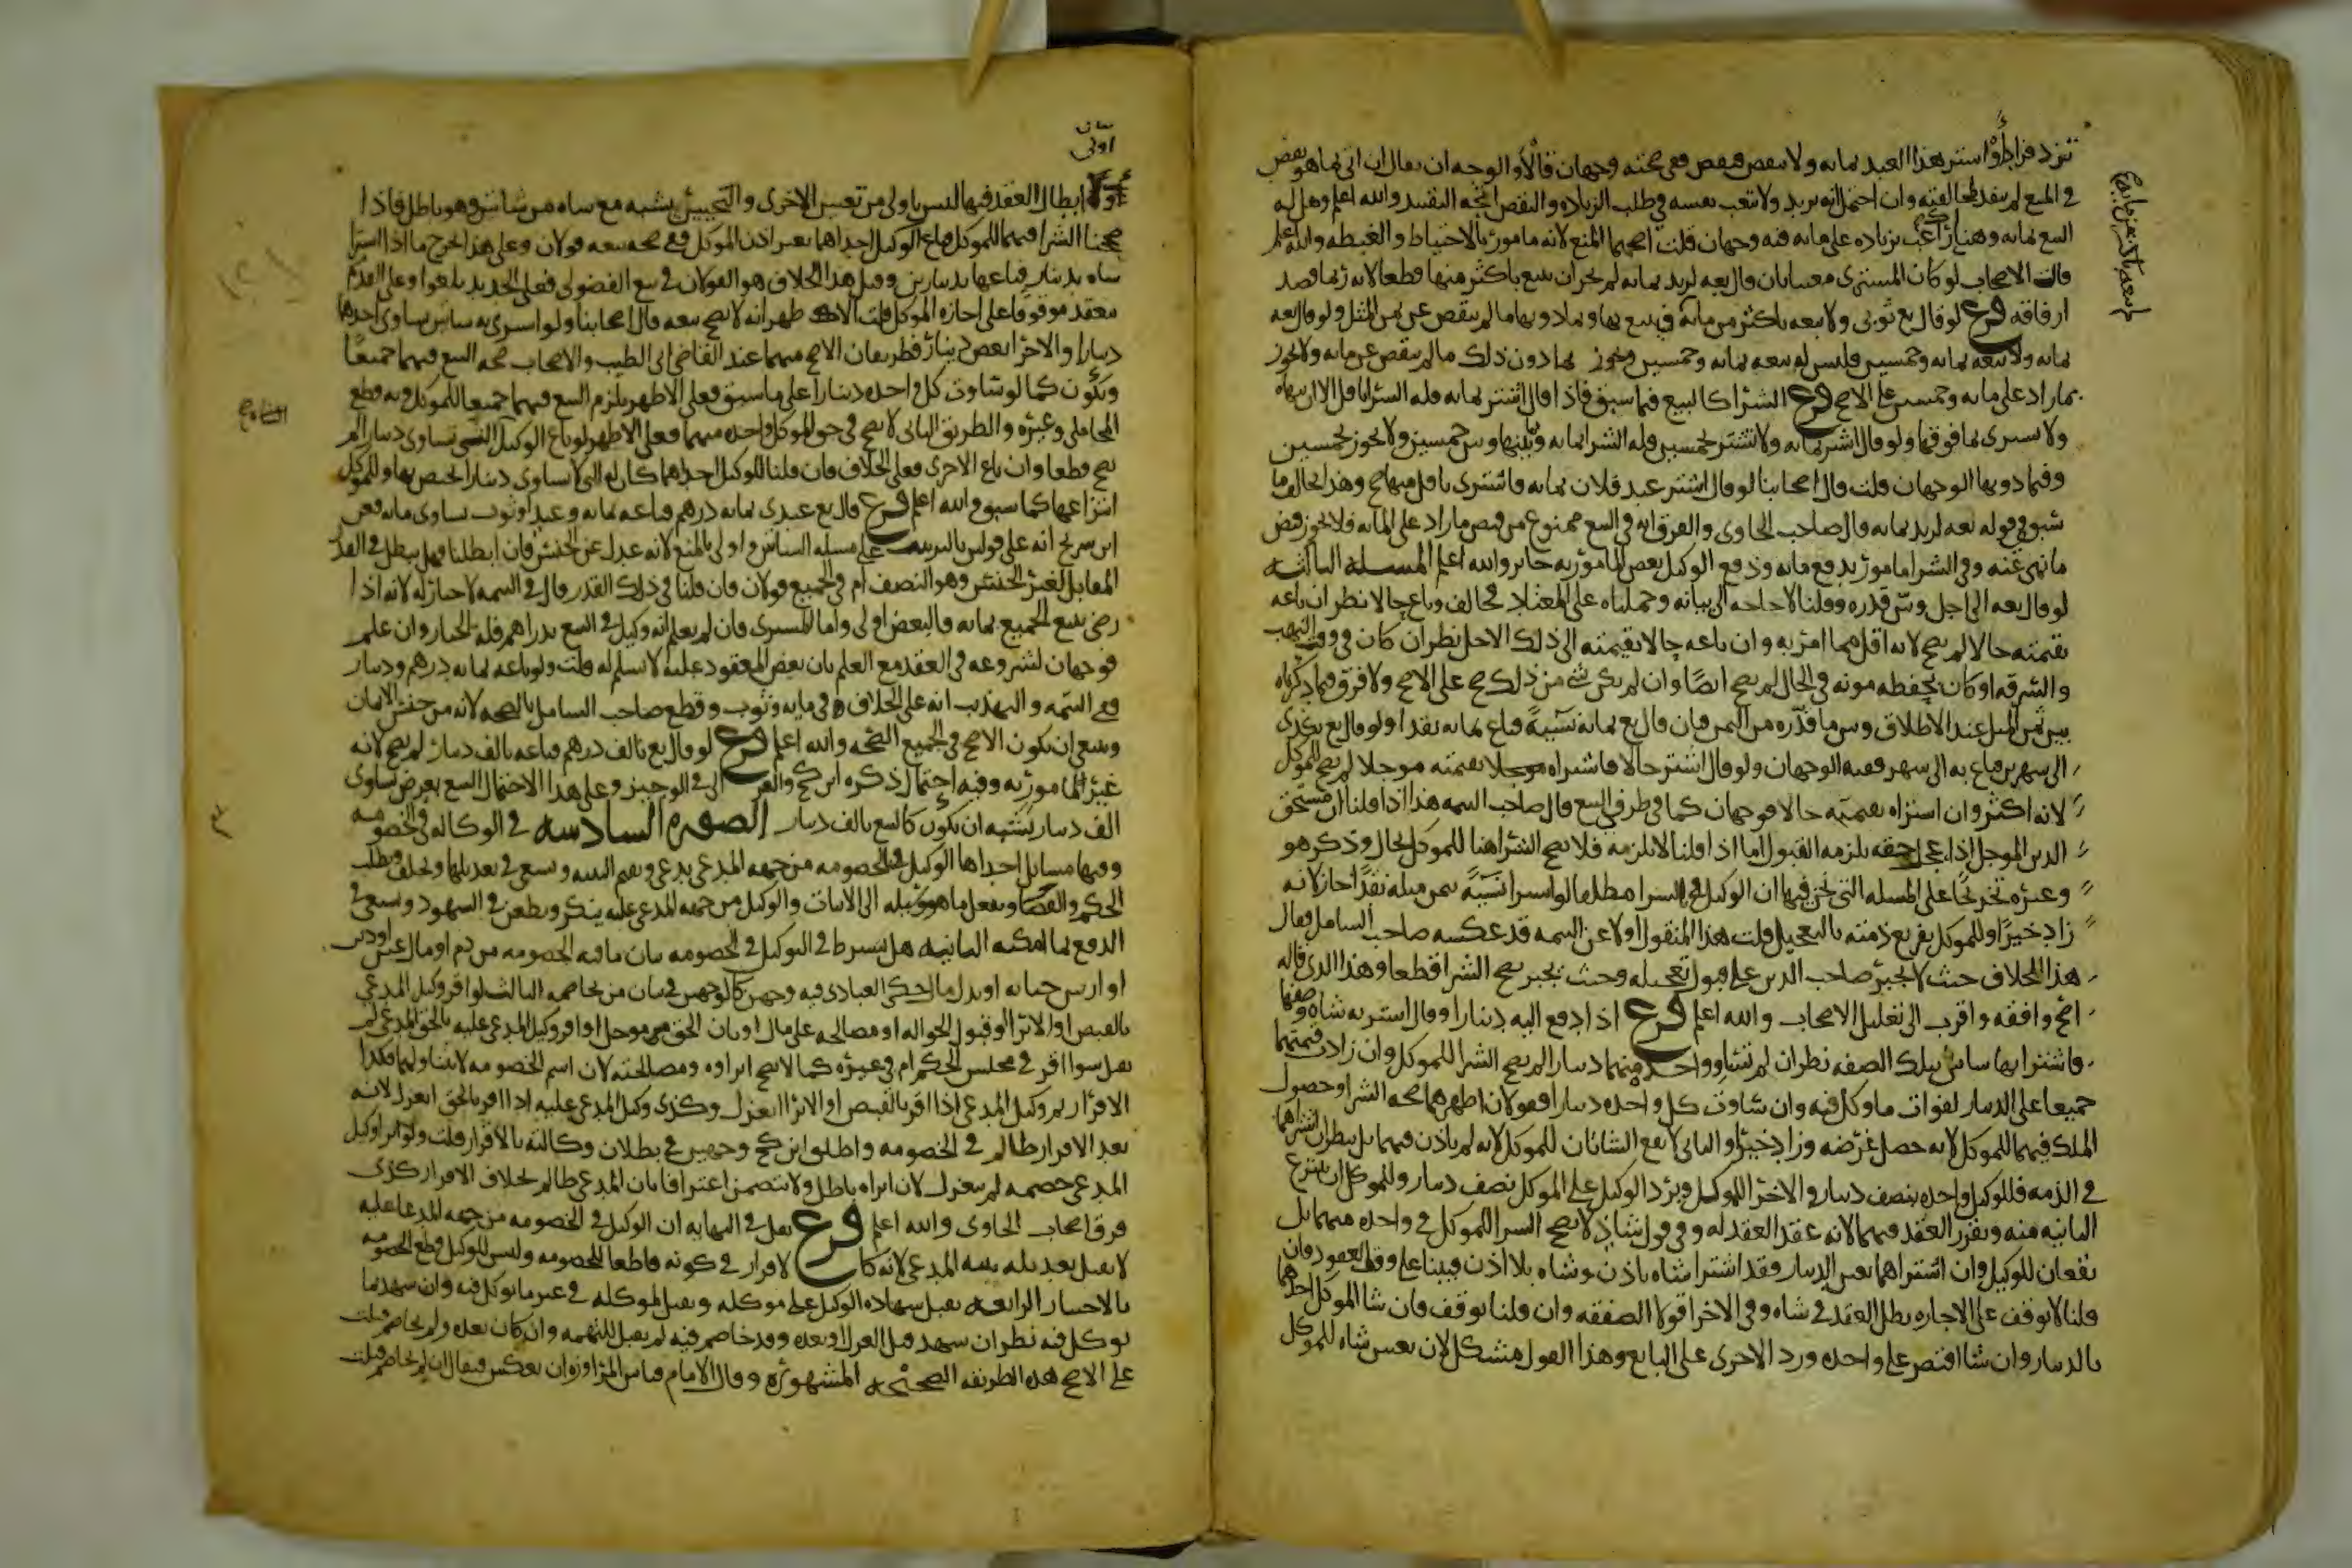 تزد فزاد أو اشتر هذا العبد بمائة ولا تنقص فنقص ففي صحته وجهان قالا والوجه أن يقال إن أتى بما هو نقص
في المنع لم ينفذ لمخالفته وإن احتمل أنه يريد ولا تتعب نفسه في طلب الزيادة والنقص اتجه التنفيذ والله أعلم وهل له
البيع بمائة وهناك راغب بزيادة على مائة فيه وجهان قلت أصحهما المنع لأنه مأمور بالاحتياط والغبطة والله أعلم
قالت الأصحاب لو كان المشتري معينا بأن قال بعه لزيد بمائة لم يجز أن يبيع بأكثر منها قطعا لأنه ربما قصد
إرفاقه فرع لو قال بع ثوبي ولا تبعه بأكثر من مائة فيبيع بها وبما دونها ما لم ينقص عن ثمن المثل ولو قال بعه
بمائة ولا تبعه بمائة وخمسين فليس له بيعه بمائة وخمسين ويجوز بما دون ذلك ما لم ينقص عن مائة ولا يجوز
بما زاد على مائة وخمسين على الأصح فرع الشراء كالبيع فيما سبق فإذا قال اشتر بمائة فله الشراء بأقل إلا أن ينهاه
ولا يشتري بما فوقها ولو قال اشتر بمائة ولا تشتر بخمسين فله الشراء بمائة وبينها وبين خمسين ولا يجوز بخمسين
وفيما دونها الوجهان قلت قال أصحابنا لو قال اشتر عبد فلان بمائة فاشترى بأقل منها صح وهذا يخالف ما
سبق في قوله بعه لزيد بمائة قال صاحب الحاوي والفرق أنه في البيع ممنوع من قبض ما زاد على المائة فلا يجوز قبض
ما نهي عنه وفي الشراء مأمور بدفع مائة ودفع الوكيل بعض المأمور به جائز والله أعلم المسئلة الثالثة
لو قال بعه إلى أجل وبين قدره وقلنا لا حاجة إلى بيانه وحملناه على المعتاد فخالف وباع حالا نظر إن باعه
بقيمته حالا لم يصح لأنه أقل مما أمر به وإن باعه حالا بقيمته إلى ذلك الأجل نظر إن كان في وقت النهب
والسرقة أو كان لحفظه مؤنة في الحال لم يصح أيضا وإن لم يكن شيء من ذلك صح على الأصح ولا فرق فيما ذكرناه
بين ثمن المثل عند الإطلاق وبين ما قدره من الثمن فإن قال بع بمائة نسيئة فباع بمائة نقدا أو لو قال بع بكذا
إلى شهرين فباع به إلى شهر ففيه الوجهان ولو قال اشتر حالا فاشتراه مؤجلا بقيمته مؤجلا لم يصح للموكل
لأنه أكثر وإن اشتراه بقيمته حالا فوجهان كما في طرف البيع قال صاحب التتمة هذا إذا قلنا إن مستحق
الدين المؤجل إذا عجل حقه يلزمه القبول أما إذا قلنا لا يلزمه فلا يصح الشراء هنا للموكل بحال وذكر هو
وغيره تخريجا على المسئلة التي نحن فيها أن الوكيل في الشراء مطلقا لو اشترى نسيئة بثمن مثله نقدا جاز لأنه
زاد خيرا وللموكل تفريغ ذمته بالتعجيل قلت هذا المنقول أولا عن التتمة قد عكسه صاحب الشامل فقال
هذا الخلاف حيث لا يجبر صاحب الدين على قبول تعجيله وحيث يجبر يصح الشراء قطعا وهذا الذي قاله
أصح وأفقه وأقرب إلى تعليل الأصحاب والله أعلم فرع إذا دفع إليه دينارا وقال اشتر به شاة وصفها
فاشترى بها شاتين بتلك الصفة نظر إن لم تساو واحدة منهما دينارا لم يصح الشراء للموكل وإن زادت قيمتهما
جميعا على الدينار لفوات ما وكل فيه وإن ساوت كل واحدة دينارا فقولان أظهرهما صحة الشراء وحصول
الملك فيهما للموكل لأنه حصل غرضه وزاد خيرا والثاني لا تقع الشاتان للموكل لأنه لم يأذن فيهما بل ينظر إن اشتراهما
في الذمة فللوكيل واحدة بنصف دينار والأخرى للموكل ويرد الوكيل على الموكل نصف دينار وللموكل أن ينتزع
الثانية منه ويقرر العقد فيهما لأنه عقد العقد له وفي قول شاذ لا يصح الشراء للموكل في واحدة منهما بل
يقعان للوكيل وإن اشتراهما بعين الدينار فقد اشترى شاة بإذن وشاة بلا إذن فيبنى على وقف العقود فإن
قلنا لا توقف على الإجازة بطل العقد في شاة وفي الأخرى قولا الصفقة وإن قلنا توقف فإن شاء الموكل أخذهما
بالدينار وإن شاء اقتصر على واحدة ورد الأخرى على البائع وهذا القول مشكل لأن تعيين شاة للموكل
أولى
إبطال العقد فيها ليس بأولى من تعيين الأخرى والتخيير يشبه مع شاة من شاتين وهو باطل فإذا
صححنا الشراء فيهما للموكل فباع الوكيل إحداهما بغير إذن الموكل ففي صحة بيعه قولان وعلى هذا يخرج ما إذا اشترى
شاة بدينار فباعها بدينارين وقيل هذا الخلاف هو القولان في بيع الفضولي فعلى الجديد يلغو وعلى القديم
ينعقد موقوفا على إجازة الموكل قلت الأظهر أنه لا يصح بيعه قال أصحابنا ولو اشترى به شاتين تساوي إحداهما
دينارا والأخرى بعض دينار فطريقان الأصح منهما عند القاضي أبي الطيب والأصحاب صحة البيع فيهما جميعا
ويكون كما لو ساوت كل واحدة دينارا على ما سبق فعلى الأظهر يلزم البيع فيهما جميعا للموكل وبه قطع
المحاملي وغيره والطريق الثاني لا يصح في حق الموكل واحدة منهما فعلى الأظهر لو باع الوكيل التي تساوي دينارا لم
يصح قطعا وإن باع الأخرى فعلى الخلاف فإن قلنا للوكيل إحداهما كان له التي لا تساوي دينارا بحصتها وللموكل
انتزاعها كما سبق والله أعلم فرع قال بع عبدي بمائة درهم فباعه بمائة وعبد أو ثوب يساوي مائة فعن
ابن سريج أنه على قولين بالترتيب على مسئلة الشاتين وأولى بالمنع لأنه عدل عن الجنس فإن أبطلنا فهل يبطل في القدر
المقابل لغير الجنس وهو النصف أم في الجميع قولان فإن قلنا في ذلك القدر قال في التتمة لا خيار له لأنه إذا
رضي ببيع الجميع بمائة فالبعض أولى وأما المشتري فإن لم يعلم أنه وكيل في البيع بدراهم فله الخيار وإن علم
فوجهان لشروعه في العقد مع العلم بأن بعض المعقود عليه لا يسلم له قلت ولو باعه بمائة درهم ودينار
ففي التتمة والتهذيب أنه على الخلاف في مائة وثوب وقطع صاحب الشامل بالصحة لأنه من جنس الأثمان
وينبغي أن يكون الأصح في الجميع الصحة والله أعلم فرع لو قال بع بألف درهم فباعه بألف دينار لم يصح لأنه
غير المأمور به وفيه احتمال ذكره ابن كج والغزالي في الوجيز وعلى هذا الاحتمال البيع بعرض يساوي
ألف دينار يشبه أن يكون كالبيع بألف دينار الصورة السادسة في الوكالة في الخصومة
وفيها مسائل إحداها الوكيل في الخصومة من جهة المدعي يدعي ويقيم البينة ويسعى في تعديلها ويحلف ويطلب
الحكم والقضاء ويفعل ما هو وسيلة إلى الإثبات والوكيل من جهة المدعى عليه ينكر ويطعن في الشهود ويسعى في
الدفع بما أمكنه الثانية هل يشترط في التوكيل في الخصومة بيان ما فيه الخصومة من دم أو مال عين أو دين
أو أرش جناية أو بدل مال حكى العبادي فيه وجهين كالوجهين في بيان من يخاصمه الثالثة لو أقر وكيل المدعي
بالقبض أو الإبراء أو قبول الحوالة أو مصالحة على مال أو بأن الحق مؤجل أو أقر وكيل المدعى عليه بالحق المدعى لم
يقبل سواء أقر في مجلس الحكم أم في غيره كما لا يصح إبراؤه ومصالحته لأن اسم الخصومة لا يتناولهما فكذا
الإقرار ثم وكيل المدعي إذا أقر بالقبض أو الإبراء انعزل وكذى وكيل المدعى عليه إذا أقر بالحق انعزل لأنه
بعد الإقرار ظالم في الخصومة وأطلق ابن كج وجهين في بطلان وكالته بالإقرار قلت ولو أبرأ وكيل
المدعي خصمه لم ينعزل لأن إبراءه باطل ولا يتضمن اعترافا بأن المدعي ظالم بخلاف الإقرار كذى
فرق أصحاب الحاوي والله أعلم فرع نقل في النهاية أن الوكيل في الخصومة من جهة المدعا عليه
لا يقبل تعديله بينة المدعي لأنه كالإقرار في كونه قاطعا للخصومة وليس للوكيل قطع الخصومة
بالاختيار الرابعة تقبل شهادة الوكيل على موكله وتقبل لموكله في غير ما توكل فيه وإن شهد بما
توكل فيه نظر إن شهد قبل العزل أو بعده وقد خاصم فيه لم يقبل للتهمة وإن كان بعده ولم يخاصم قبلت
على الأصح هذه الطريقة الصحيحة المشهورة وقال الإمام قياس المراوزة أن يعكس فيقال إن لم يخاصم قبلت